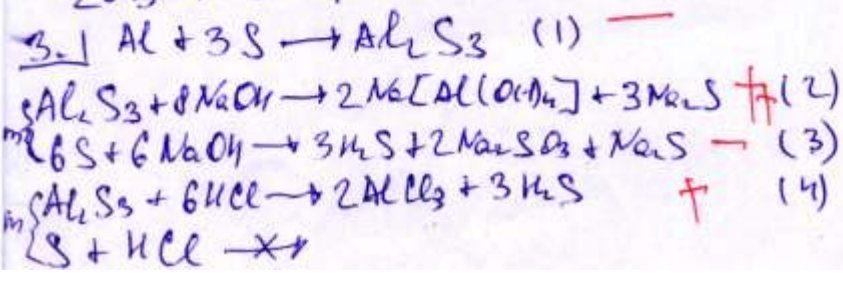 3.1 Al + 3S → Al₂S₃ (1) —
Al₂S₃ + 8NaOH → 2Na[Al(OH)₄] + 3Na₂S + (2)
6S + 6NaOH → 3H₂S + 2Na₂SO₃ + Na₂S − (3)
Al₂S₃ + 6HCl → 2AlCl₃ + 3H₂S + (4)
S + HCl ↛